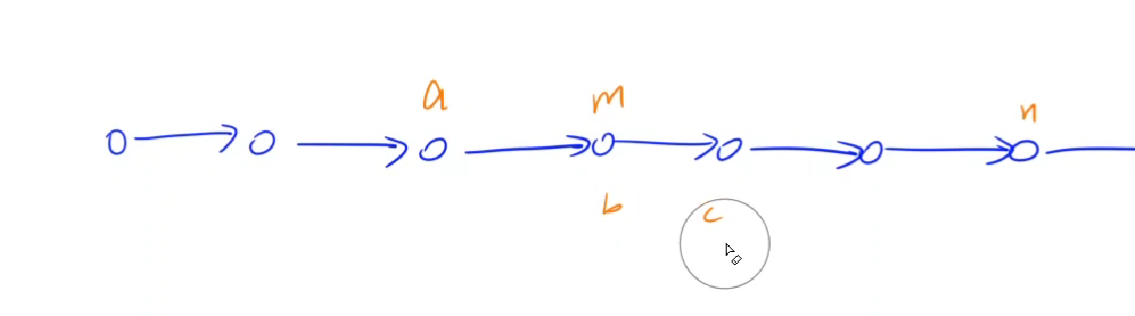 a m n
b c